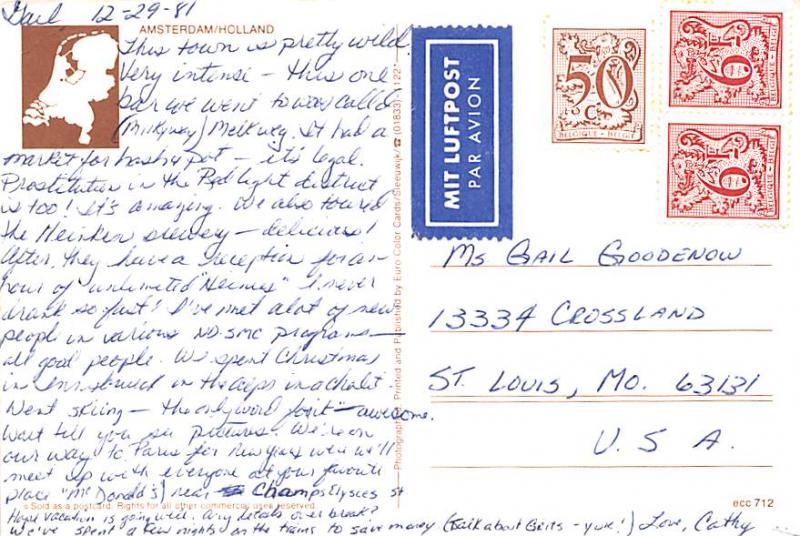 Gail 12-29-81
AMSTERDAM/HOLLAND
This town is pretty wild
Very intense - this one
bar we went to was called
(Milkyway) Melkweg. It had a
market for hash & pot - it's legal.
Prostitution in the Red light district
is too! It's amazing. We also toured
the Heineken brewery - delicious!
After, they have a reception for an
hour of unlimited "Heinies" I never
drank so fast! I've met alot of new
people in various ND-SMC programs -
all good people. We spent Christmas
in Innsbruck in the alps in a chalet.
Went skiing - the only word for it - awesome.
Wait till you see pictures. We're on
our way to Paris for New years where we'll
meet up with everyone at your favorite
place "McDonald's) near Champs Elysees st
Hope vacation is going well. Any details over break?
We've spent a few nights on the trains to save money (talk about Grits - yuk!) Love, Cathy
© Sold as a postcard. Rights for all other commercial uses reserved.
Photography, Printed and Published by Euro Color Cards/Sleeuwijk/☎ (01833) 122*
MIT LUFTPOST
PAR AVION
50 C
BELGIQUE - BELGIË
6F
BELGIQUE - BELGIË
6F
BELGIQUE - BELGIË
MS GAIL GOODENOW
13334 CROSSLAND
ST. LOUIS, MO. 63131
U.S.A.
ecc 712